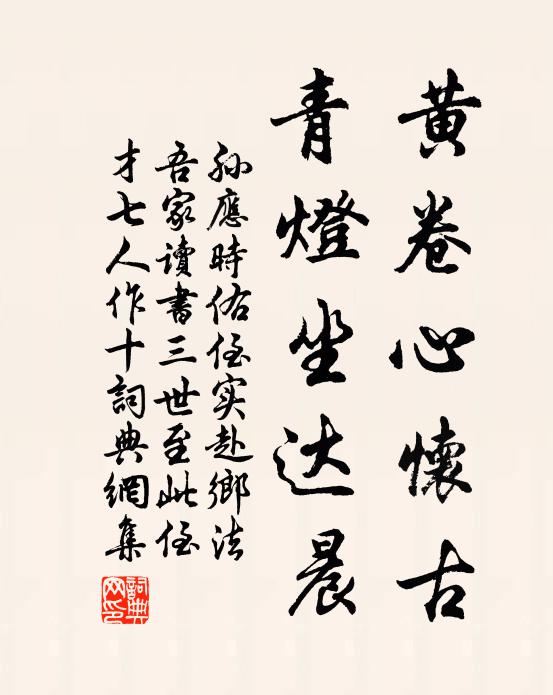 黄卷心懷古
青燈坐达晨
孫應時佑侄实赴鄉法
吾家讀書三世至此侄
才七人作十詞典網集
詞典网印